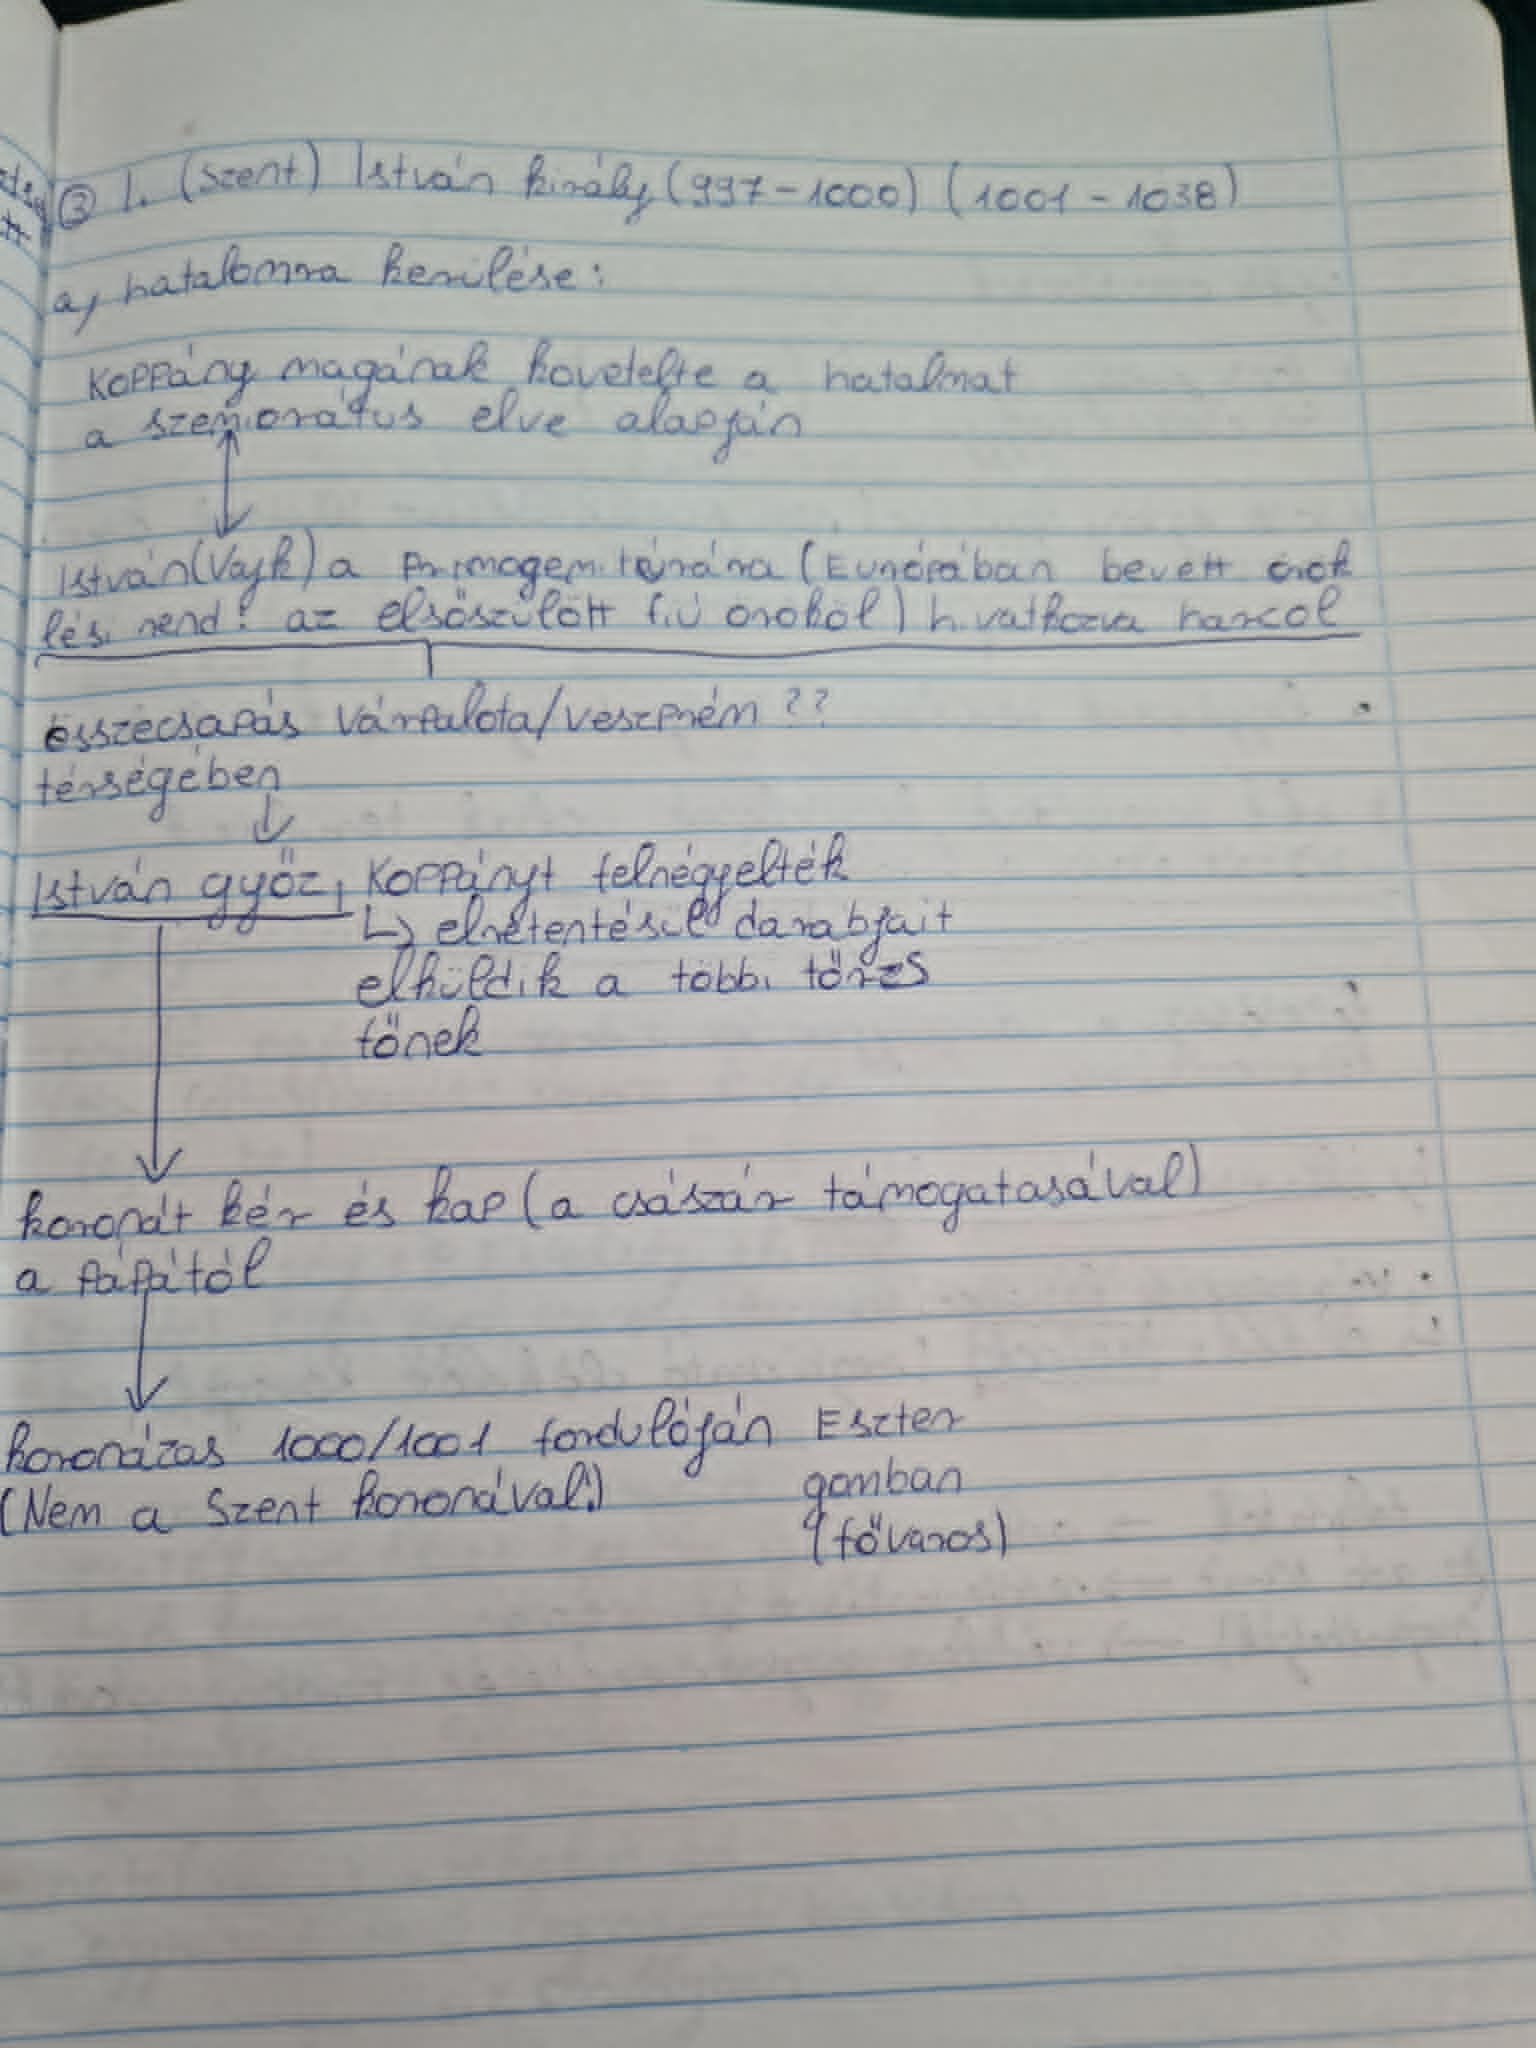 ③ I. (Szent) István király (997-1000) (1001-1038)
a, hatalomra kerülése:
Koppány magának követelte a hatalmat
a szeniorátus elve alapján
István (Vajk) a primogenitúrára (Európában bevett örök
lési rend: az elsőszülött fiú örököl) hivatkozva harcol
összecsapás Várpalota/Veszprém ??
térségében
István győz, Koppányt felnégyelték
↳ elrettentésül darabjait
elküldik a többi törzs
főnek
koronát kér és kap (a császár támogatasával)
a pápától
koronázas 1000/1001 fordulóján Eszter
gomban
(Nem a Szent koronával!)
(főváros)